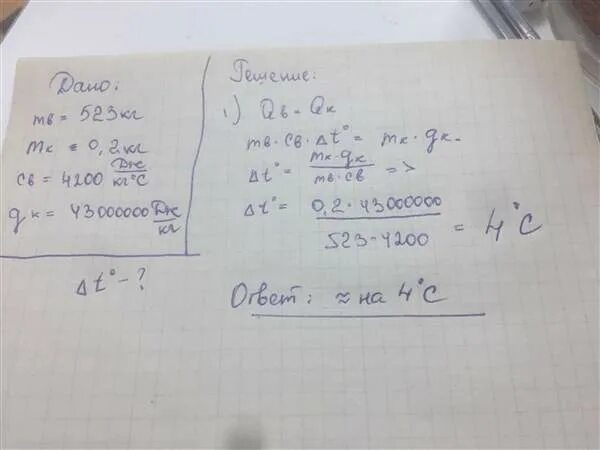 Дано:
mв = 523кг
mк = 0,2кг
cв = 4200 Дж/кг°C
qк = 43000000 Дж/кг
Δt° - ?
Решение:
1) Qв = Qк
mв · cв · Δt° = mк · qк.
Δt° = mк · qк / mв · cв =>
Δt° = 0,2 · 43000000 / 523 · 4200 = 4°C
Ответ: ≈ на 4°C